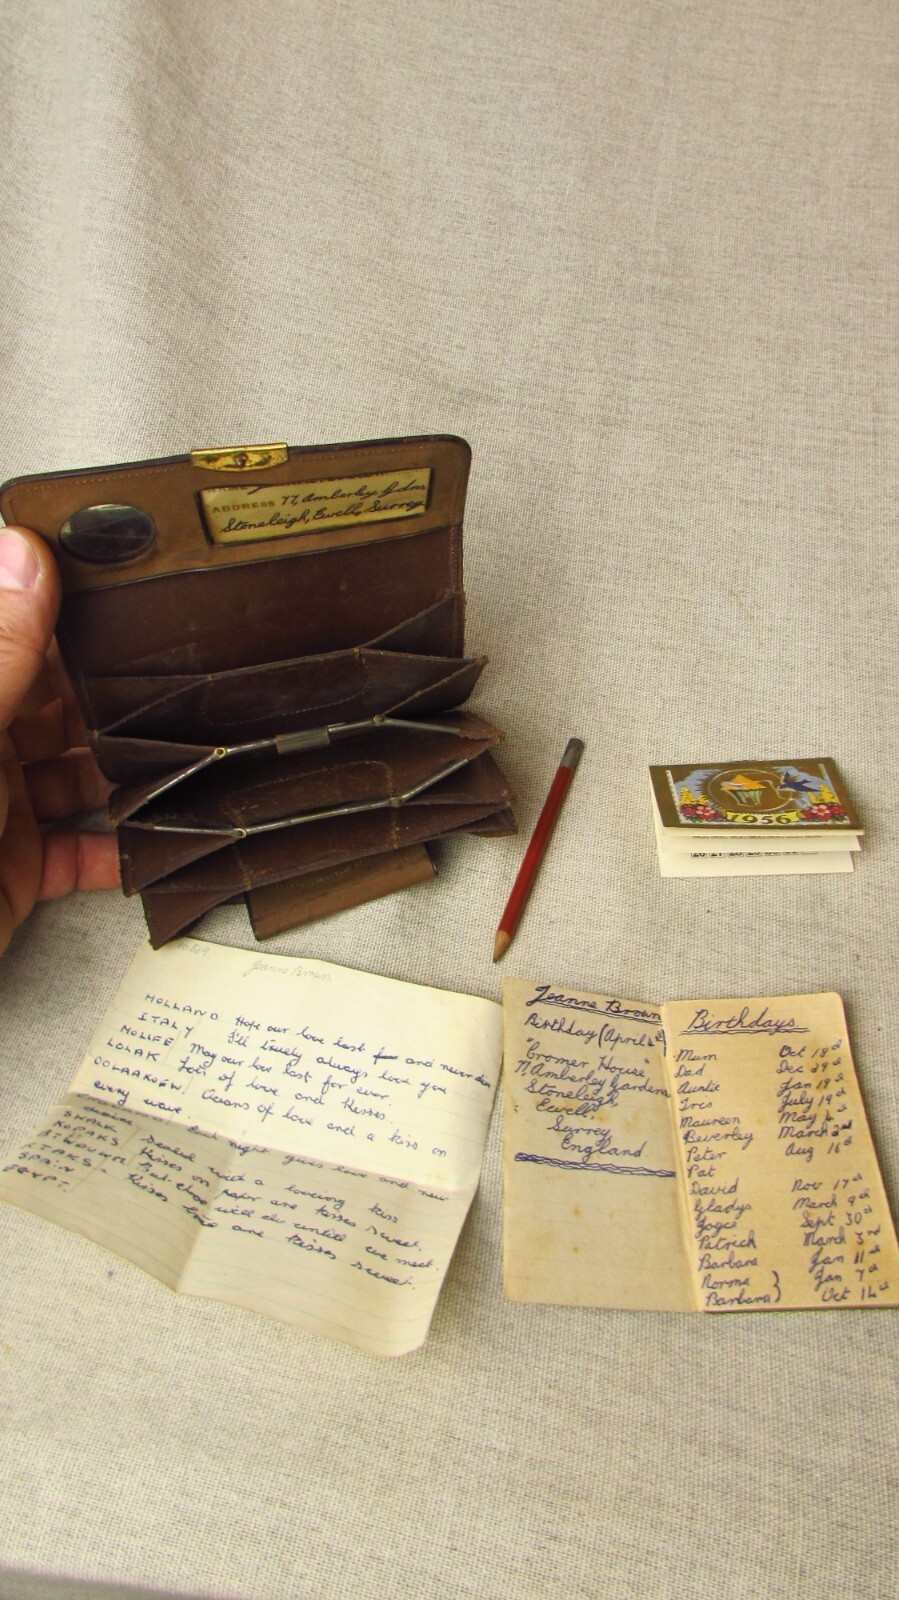 ADDRESS 77, Amberley Gdns
Stoneleigh, Ewell, Surrey
1956
26 27 28 29 30 31
Jeanne Brown
HOLLAND Hope our love last and never dies
ITALY I'll truely always love you
NOLIFE May our love last for ever.
LOLAK Lots of love and kisses.
OOLAAKOEW Oceans of love and a kiss on
every wave.
but night gives love and new
SWALK Sealed with a loving kiss
KOPAKS Kisses on paper are kisses sweet.
BTWDUWM But these will do untill we meet.
ITAKS Kisses sweet.
SPAIN love are kisses
EGYPT.
Jeanne Brown
Birthday (April 4th)
"Cromer House"
77, Amberley Gardens
Stoneleigh,
Ewell,
Surrey
England.
Birthdays
Mum Oct 18th
Dad Dec 29th
Auntie Jan 19th
Iris July 19th
Maureen May 6th
Beverley March 2nd
Peter Aug 16th
Pat
David Nov 17th
Gladys March 9th
Joyce Sept 30th
Patrick March 3rd
Barbara Jan 11th
Norma } Jan 7th
Barbara } Oct 14th